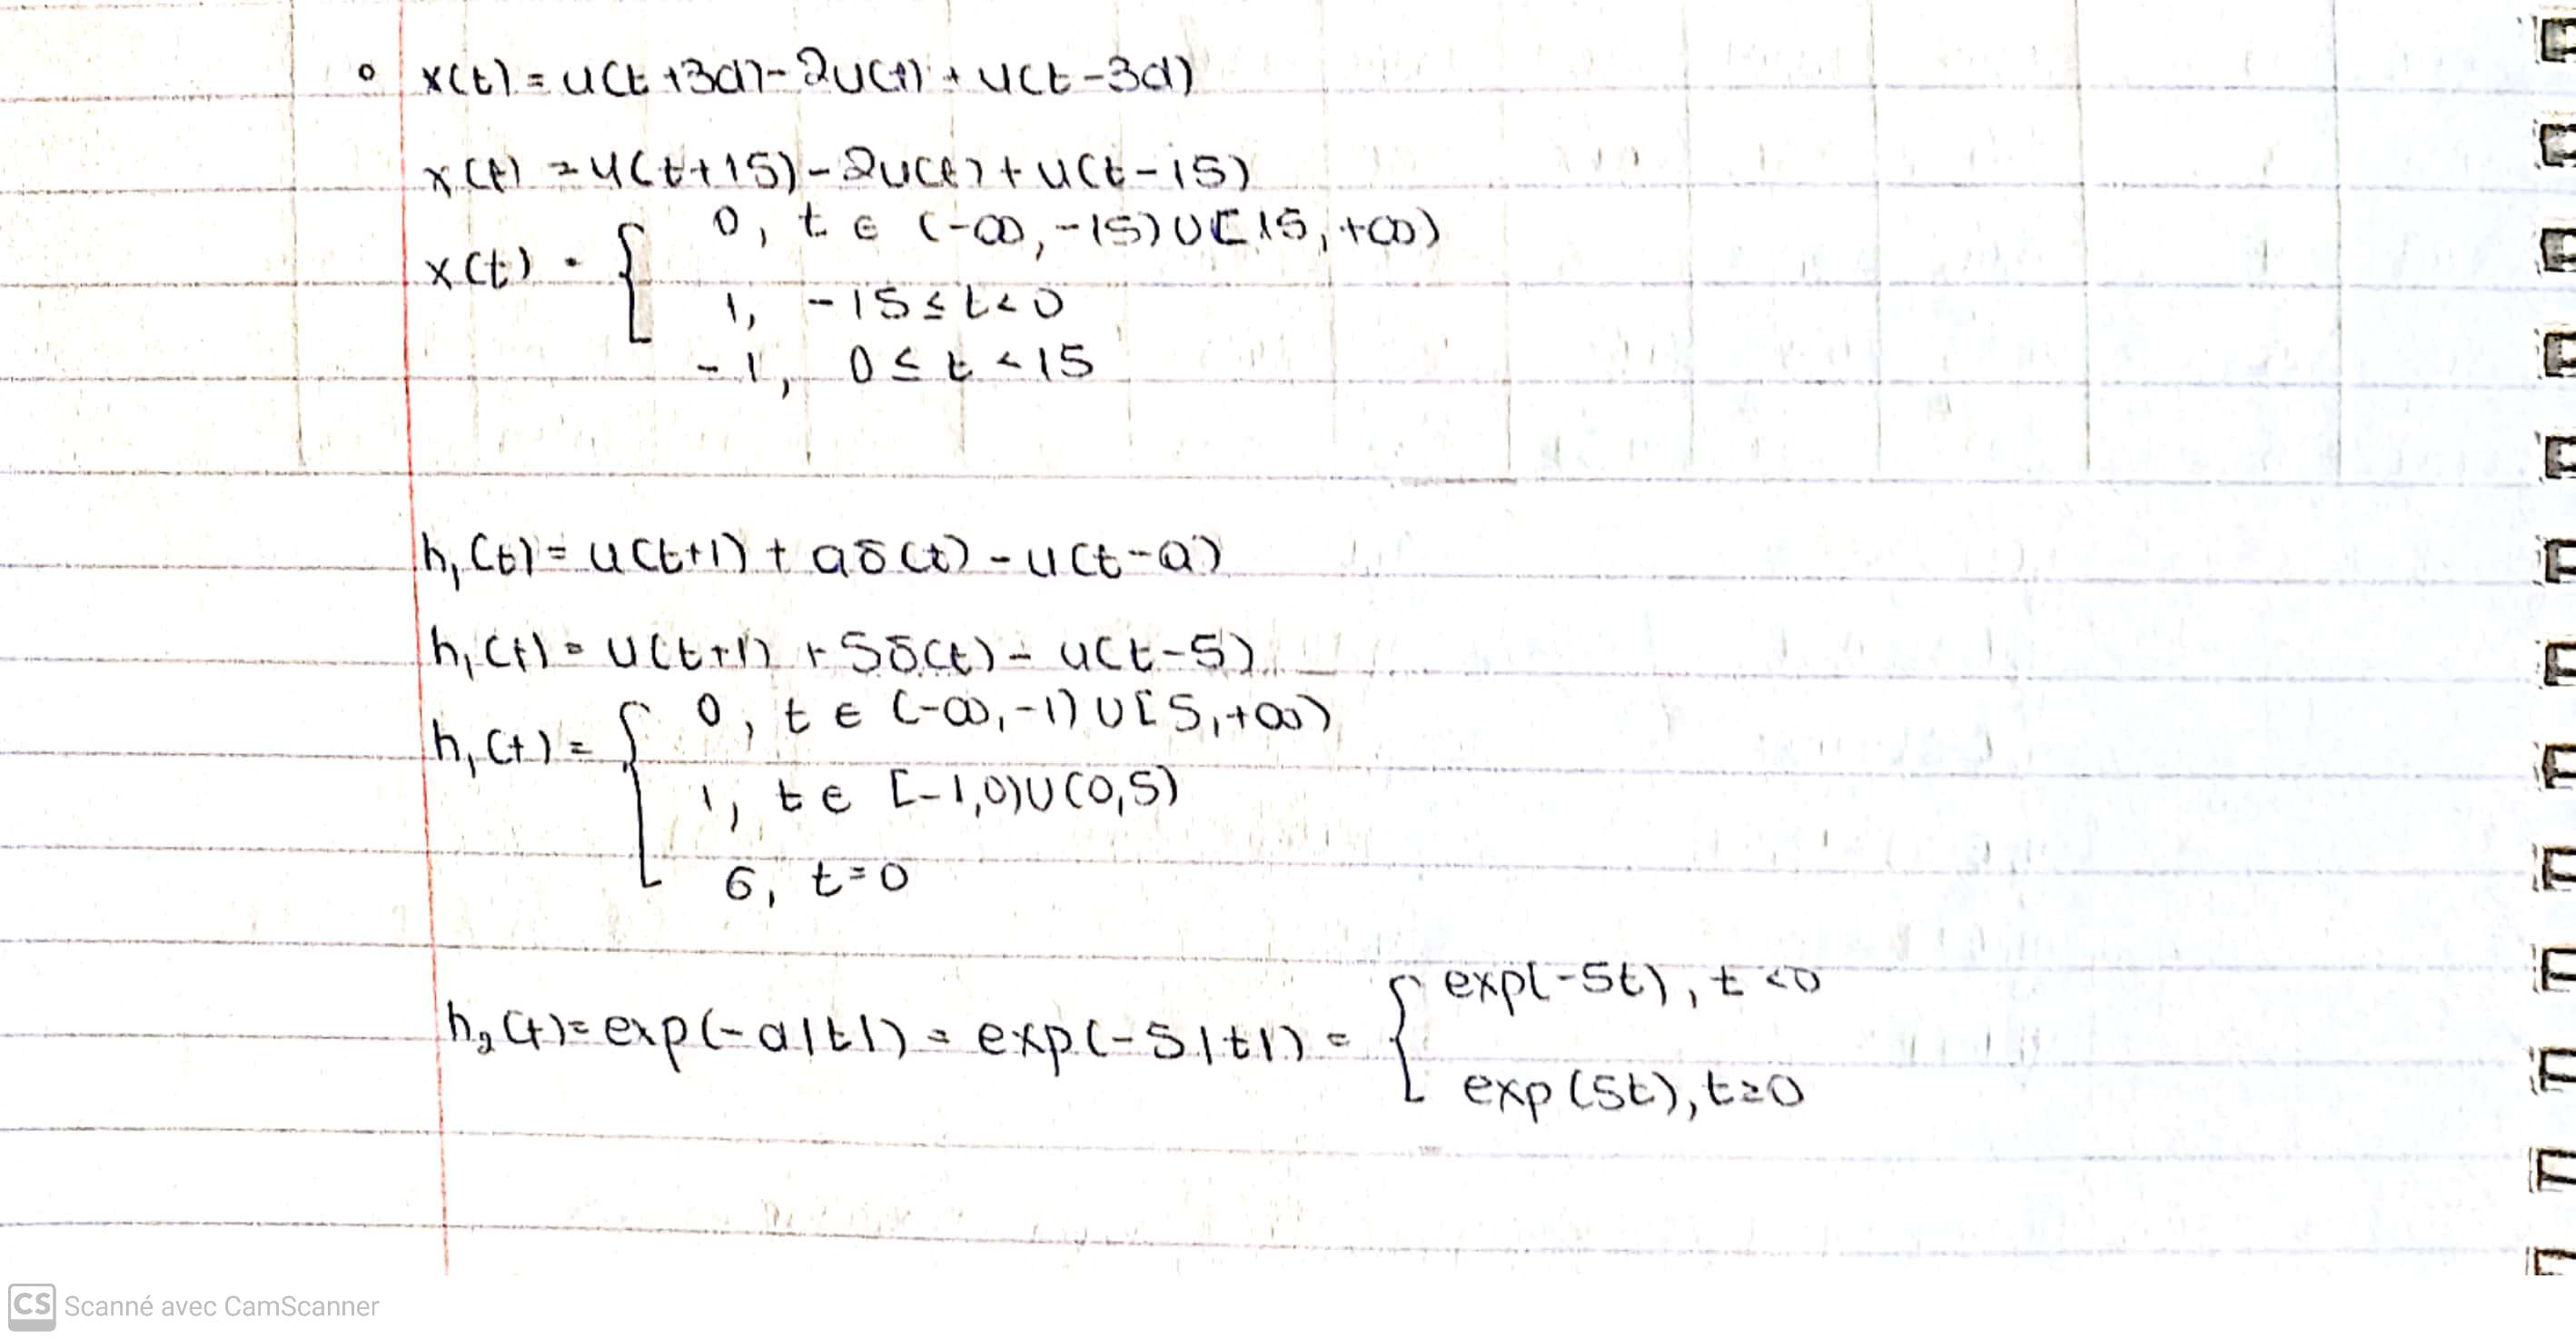 x(t) = u(t+3a) - 2u(t) + u(t-3a)
x(t) = u(t+15) - 2u(t) + u(t-15)
x(t) = { 0, t ∈ (-∞, -15) ∪ [15, +∞)
1, -15 ≤ t < 0
-1, 0 ≤ t < 15
h₁(t) = u(t+1) + aδ(t) - u(t-a)
h₁(t) = u(t+1) + 5δ(t) - u(t-5)
h₁(t) = { 0, t ∈ (-∞, -1) ∪ [5, +∞)
1, t ∈ [-1,0) ∪ (0,5)
6, t=0
h₂(t) = exp(-a|t|) = exp(-5|t|) = { exp(-5t), t<0
exp(5t), t≥0
CS Scanné avec CamScanner